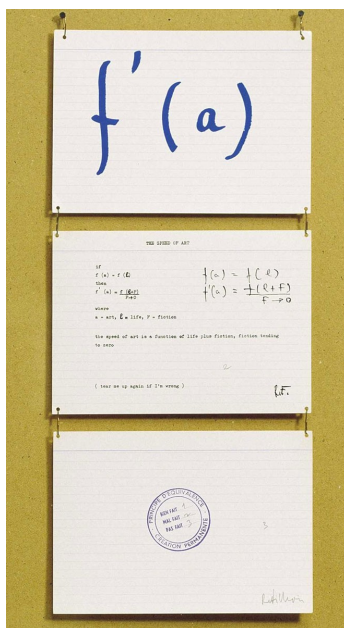 f'(a)
THE SPEED OF ART
if
f (a) = f (ℓ)
then
f' (a) = f (ℓ+F)
F→0
where
a = art, ℓ = life, F = fiction
the speed of art is a function of life plus fiction, fiction tending
to zero
( tear me up again if I'm wrong )
f(a) = f(ℓ)
f'(a) = f(ℓ+F)
F→0
R.F.
PRINCIPE D'EQUIVALENCE
BIEN FAIT 1
MAL FAIT
PAS FAIT 3
CREATION PERMANENTE
3